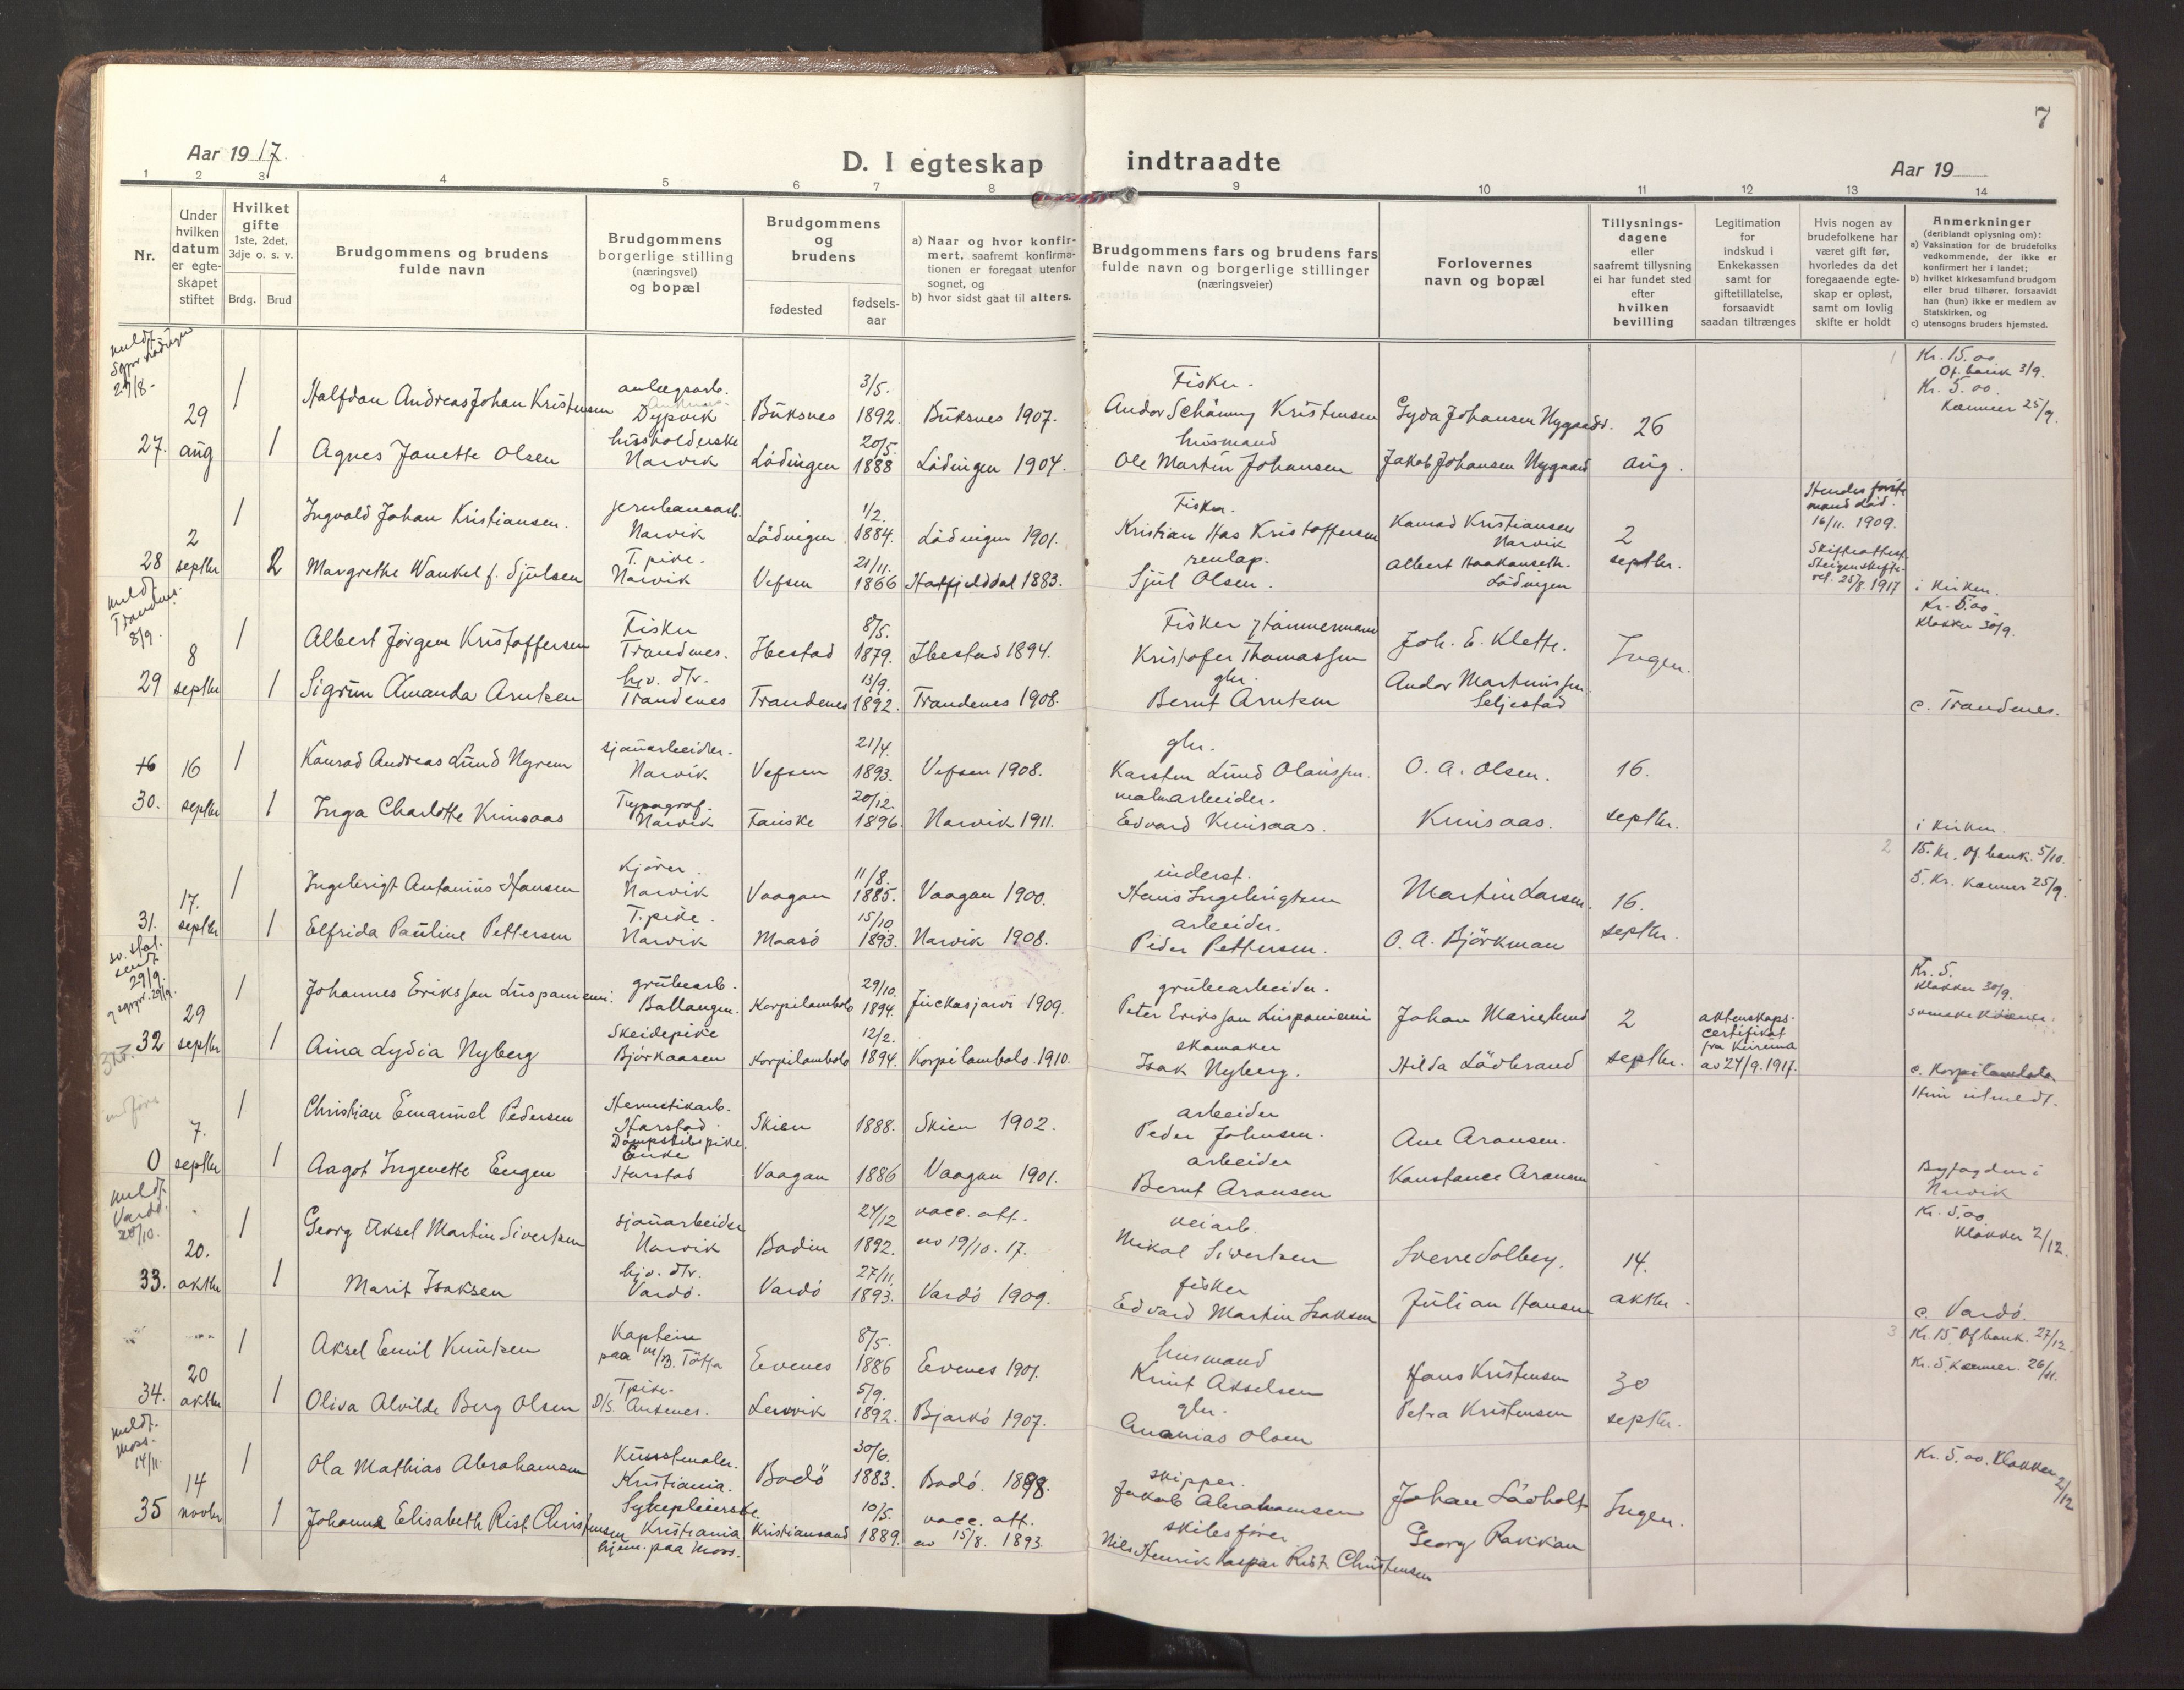 7
Aar 1917.
D. I egteskap indtraadte
Aar 19
1 2 3 4 5 6 7 8 9 10 11 12 13 14
Nr.
Under hvilken datum er egteskapet stiftet
Hvilket gifte
1ste, 2det, 3dje o. s. v.
Brdg. Brud
Brudgommens og brudens fulde navn
Brudgommens borgerlige stilling (næringsvei) og bopæl
Brudgommens og brudens
fødested
fødsels-aar
a) Naar og hvor konfirmert, saafremt konfirmationen er foregaat utenfor sognet, og
b) hvor sidst gaat til alters.
Brudgommens fars og brudens fars fulde navn og borgerlige stillinger (næringsveier)
Forlovernes navn og bopæl
Tillysningsdagene eller saafremt tillysning ei har fundet sted efter hvilken bevilling
Legitimation for indskud i Enkekassen samt for giftetillatelse, forsaavidt saadan tiltrænges
Hvis nogen av brudefolkene har været gift før, hvorledes da det foregaaende egteskap er opløst, samt om lovlig skifte er holdt
Anmerkninger
(deriblandt oplysning om):
a) Vaksination for de brudefolks vedkommende, der ikke er konfirmert her i landet;
b) hvilket kirkesamfund brudgom eller brud tilhører, forsaavidt han (hun) ikke er medlem av Statskirken, og
c) utensogns bruders hjemsted.
meldt 29/8-
27. 29 aug
1 Halfdan Andreas Johan Kristensen anlegsarb. Dypvik Buksnes 3/5. 1892. Buksnes 1907. Fisker. Andor Schanny Kristensen Gyda Johansen Nygaard. 26 aug.
1 Agnes Janette Olsen husholderske Narvik Lødingen 20/5. 1888 Lødingen 1904. husmand Ole Martin Johansen Jakob Johansen Nygaard
Kr. 15.00 Of. bank 3/9.
Kr. 5.00. Kæmner 25/9.
28 2 septbr
1 Ingvald Johan Kristiansen. jernbanearb. Narvik Lødingen 1/2. 1884. Lødingen 1901. Fisker. Kristian Has Kristoffersen Konrad Kristiansen Narvik 2 septbr.
2 Margrethe Wankel f. Sjulsen T. pike. Narvik Vefsen 21/11. 1866 Hatfjelddal 1883. renlap. Sjul Olsen. Albert Haakonseth. Lødingen
Hendes første mand død 16/11. 1909. Skifteattest Steigenskifteret. 25/8. 1917
i kirken.
meldt Trandenes. 8/9.
29 8 septbr
1 Albert Jørgen Kristoffersen Fisker Trandenes. Ibestad 8/5. 1879. Ibestad 1894. Fisker tømmermand Kristofer Thomassen Joh. E. Klette. Ingen.
1 Sigrun Amanda Arntzen hjv. dtr. Trandenes Trandenes 13/9. 1892. Trandenes 1908. gbr. Bernt Arntzen Andor Martinussen. Seljestad
Kr. 5.00. Klokker 30/9.
c. Trandenes.
16
30. 16 septbr
1 Konrad Andreas Lund Nyrem sjauarbeider. Narvik Vefsen 21/4. 1893. Vefsen 1908. gbr. Karsten Lund Olaussen. O. A. Olsen. 16. septbr.
1 Inga Charlotte Knisaas Typograf. Narvik Fauske 20/12. 1896. Narvik 1911. malmarbeider. Edvard Knisaas. Knisaas.
i kirken.
31. 17. septbr
1 Ingebrigt Antonius Hansen Kjører. Narvik Vaagan 11/8. 1885. Vaagan 1900. inderst. Hans Ingebrigtsen Martin Larsen. 16. septbr.
1 Elfrida Pauline Pettersen T. pike. Narvik Maasø 15/10 1893. Narvik 1908. arbeider. Peder Pettersen. O. A. Björkman
2 15. kr. Of. bank. 5/10.
5. kr. Kæmner 25/9.
sv. stat. sendt 29/9.
32 29 septbr
1 Johannes Eriksson Luspaniemi. grubearb. Ballangen. Korpilombolo 29/10. 1894. Juckasjarvi 1909. grubearbeider. Peter Eriksson Luspaniemi Johan Marielund 2 septbr.
1 Aina Lydia Nyberg Skeidepike Bjørkaasen Korpilombolo 12/2. 1894. Korpilombolo. 1910. skomaker Isak Nyberg. Hilda Lødbrand
aktenskapscertifikat fra Kiruna av 24/9. 1917.
Kr. 5. Klokker 30/9.
c. Korpilombolo
0 7. septbr
1 Christian Emanuel Pedersen Hermetikarb. Harstad. Skien 1888. Skien 1902. arbeider Peder Johnsen. Ane Aronsen.
1 Aagot Ingenette Engen Dampskibspike. Enke Harstad Vaagan 1886 Vaagan 1901. arbeider Bernt Aronsen Konstance Aronsen
Hun utmeldt.
Byfogden i Narvik
meldt Vardø. 20/10.
33. 20. oktbr
1 Georg Aksel Martin Sivertsen sjauarbeider Narvik Bodin 24/12 1892. vacc. att. av 19/10. 17. veiarb. Mikal Sivertsen Sverre Solberg. 14. oktbr.
1 Marit Isaksen hjv. dtr. Vardø. Vardø 27/11. 1893. Vardø 1909. fisker Edvard Martin Isaksen Julian Hansen
Kr. 5.00 Klokker 2/12.
c. Vardø.
34. 20 oktbr
1 Aksel Emil Knutsen Kaptein paa M/B. Tötta Evenes 8/5. 1886 Evenes 1901. husmand Knut Akselsen Hans Kristensen 30 septbr.
1 Oliva Alvilde Berg Olsen Tpike. D/S. Ankenes. Lenvik 5/9. 1892. Bjarkø 1907. gbr. Ananias Olsen Petra Kristensen
3 Kr. 15 Of bank. 27/12.
Kr. 5 Kæmner. 26/11.
meldt. Moss. 14/11.
35 14 novbr
1 Ola Mathias Abrahamsen Kunstmaler. Kristiania. Bodö 30/6. 1883. Bodø. 1898. skipper. Jakob Abrahamsen Johan Løvholt Ingen.
1 Johanna Elisabeth Rist Christensen Sykepleierske. Kristiania hjem. paa Moss. Kristiansand 10/5. 1889. vacc. att. av 15/8. 1893. skibsfører Nils Henrik Kaspar Rist Christensen Georg Rakkan
Kr. 5.00. Klokker 2/12